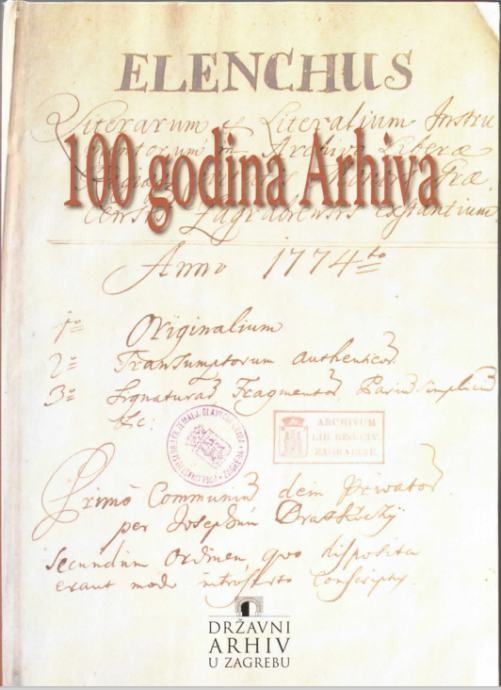 ELENCHUS
Literarum et Literalium Instru
100 godina Arhiva
Zagrabiensis extantium
Anno 1774to
1o Originalium
2o Transumptorum authenticor
3o Signaturar Fragmentor Parium simplicium
&c:
ARCHIVUM
LIB. REG. CIV.
ZAGRABIAE.
Primo Communium dein Privator
per Josephum
Secundum Ordinem quo disposita
erant modo introserto Conscripts
DRŽAVNI
ARHIV
U ZAGREBU